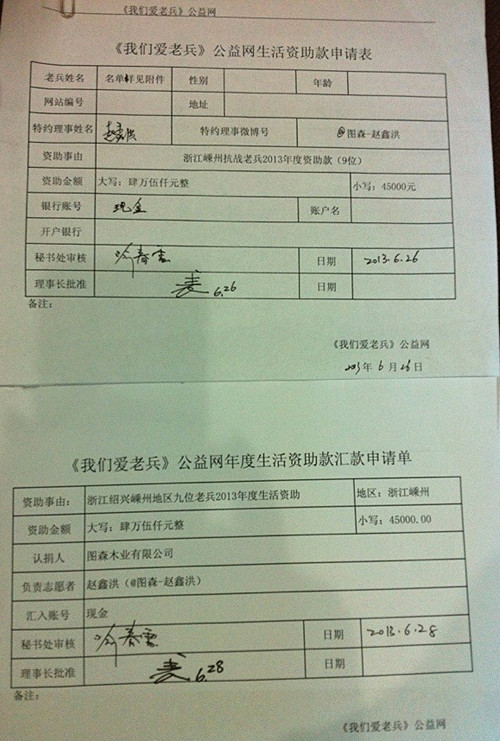 《我们爱老兵》公益网
《我们爱老兵》公益网生活资助款申请表
老兵姓名 名单详见附件 性别 年龄
网站编号 地址
特约理事姓名 赵鑫洪 特约理事微博号 @图森-赵鑫洪
资助事由 浙江嵊州抗战老兵2013年度资助款（9位）
资助金额 大写：肆万伍仟元整 小写：45000元
银行账号 现金 账户名
开户银行
秘书处审核 日期 2013.6.26
理事长批准 6.26 日期
备注：
《我们爱老兵》公益网
2013年 6 月 26 日
《我们爱老兵》公益网年度生活资助款汇款申请单
资助事由： 浙江绍兴嵊州地区九位老兵2013年度生活资助 地区：浙江嵊州
资助金额 大写：肆万伍仟元整 小写：45000.00
认捐人 图森木业有限公司
负责志愿者 赵鑫洪（@图森-赵鑫洪）
汇入账号 现金
秘书处审核 日期 2013.6.28
理事长批准 6.28 日期
备注：
《我们爱老兵》公益网